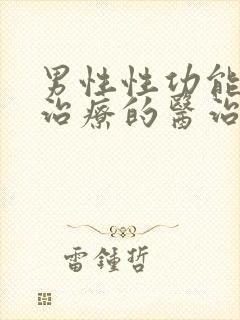 男性性功能
治療的醫治
雷鍾哲